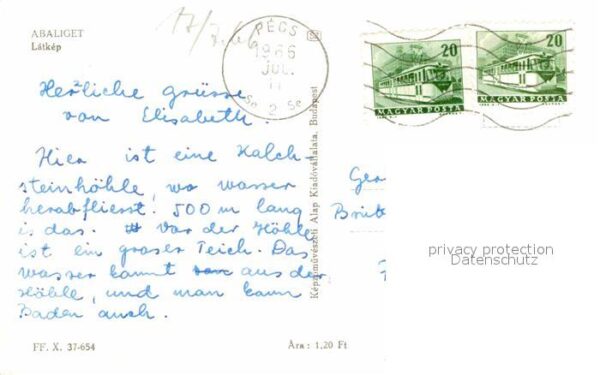 ABALIGET
Látkép
17/7. 66
PÉCS
1966
JUL.
11
2
20
MAGYAR POSTA
20
MAGYAR POSTA
Herzliche grüsse
von Elisabeth.
Hier ist eine Kalch-
steinhöhle, wo wasser
herabfliesst. 500 m lang
is das. Vor der Höhle
ist ein groser Teich. Das
wasser kommt aus der
Höhle, und man kann
Baden auch.
Képzőművészeti Alap Kiadóvállalata, Budapest
Ger
Brit
privacy protection
Datenschutz
FF. X. 37-654
Ára: 1,20 Ft